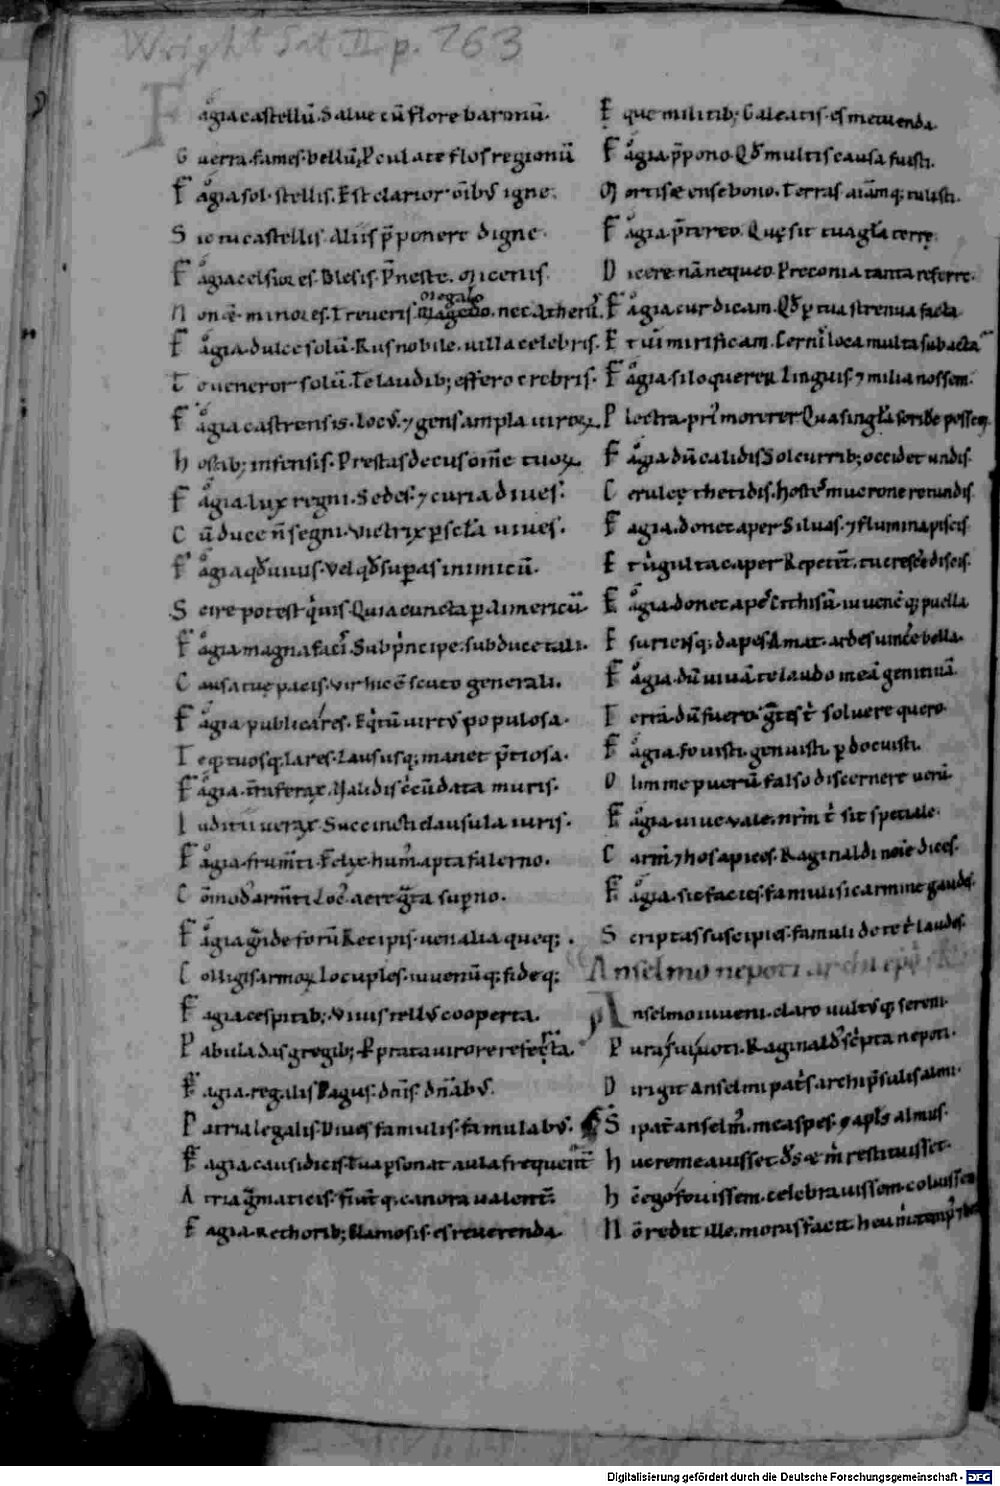 Wright Sat II p. 263
Fagia castellū. Salue cū flore baronū.
Guerra. fames. bellū, P culate flos regionū
Fagia sol. stellis. Est clarior oībꝰ igne.
Sic tu castellis. Aliis p̄ponere digne.
Fagia celsior es. Blesis. P̄neste.
Non ē minor es. Treueris
Megalo
Fagia. dulce solū. Rus nobile. uilla celebris.
Te ueneror solū. Te laudib; effero crebris.
Fagia castrensis. Locꝰ. ⁊ gens ampla uiroꝝ.
Hostib; infensis. Prestas decus om̄e tuoꝝ.
Fagia. lux regni. Sedes. ⁊ curia diues.
Cū duce n̄ segni. Victrix p sc̄la uiues.
Fagia qd̄ uiuus. Vel qd̄ supas inimicū.
Scire potest quis. Quia cuncta p Aimericū
Fagia magna facis. Sub pncipe. sub duce tali.
Causa tue pacis. Vir hic ē scuto generali.
Fagia publica res. Eqtū uirtꝰ populosa.
Teq tuosq; lares. Laus usq; manet p̄tiosa.
Fagia. Validis cc̄ūdata muris.
Iudicii uerax. Succincti clausula iuris.
Fagia. frum̄ti. Felix. hum apta falerno.
Com̄od arm̄ti Loc. aere gta supno.
Fagia gnde forū Recipis. uenalia queq;.
Colligis armoꝝ Locuples. iuuenū q; fideq;
Fagia cespitib; Viuis tellꝰ cooperta.
Pabula das gregib; P prata uirore referta.
Fagia. regalis Pagus. dnis. dn̄abꝰ.
Patria legalis. Diues famulis. famulabꝰ.
Fagia causidicis. tua psonat aula frequent̄
Atria gmaticis. canora ualent̄.
Fagia. Rethorib; flamosis. es reuerenda
Eque militib; Galeatis. es metuenda.
Fagia. p̄pono. Qd̄ multis causa fuisti.
Mortis ense bono. Terras aiamq; tulisti.
Fagia. p̄tereo. Quę sit tua gla terrę.
Dicere nā nequeo. Preconia tanta referre.
Fagia cur dicam. Qd̄ p tua strenua facta
Et ui mirificam. Cerni loca multa subacta
Fagia. si loquerer Linguis. ⁊ milia nossem.
Plectra. pri morerer Qua singla scribe possem.
Fagia dū calidis Sol currib; occidet undis.
Ceruleę thetidis. hostes mucrone rotundis
Fagia. donec aper Siluas. ⁊ flumina piscis
Et uigulta caper Repetet. tu crescere discis.
Fagia donec ape Cithisū. iuuencq; puella
Esuriensq; dapes Amat. ardes uince bella.
Fagia. dū uiuā te laudo meā genitiuā.
Terrā. dū fuero. gtes t soluere quero
Fagia. fouisti. genuisti. p docuisti.
Olim me puerū falso discernere uerū
Fagia uiue uale. nrm t sit speciale.
Carm ⁊ hos apices. Raginaldi noīe dices.
Fagia. sic facies. famuli sic carmine gaudes.
Scripta suscipies. famuli do te t laudes.
Anselmo nepoti archiepi
Anselmo iuueni. claro uultꝰ q sereni.
Pura fui uoti. Raginaldꝰ scripta nepoti.
Dirigit anselmi patis. archip̄sulis almi.
Si pat anselm. mea spes. ⁊ apls almus.
Huc remeauisset. restituisset.
Hc̄ ego fouissem. celebrauissem. coluissem
Nō redit ille. moras facit. heu
Digitalisierung gefördert durch die Deutsche Forschungsgemeinschaft - DFG